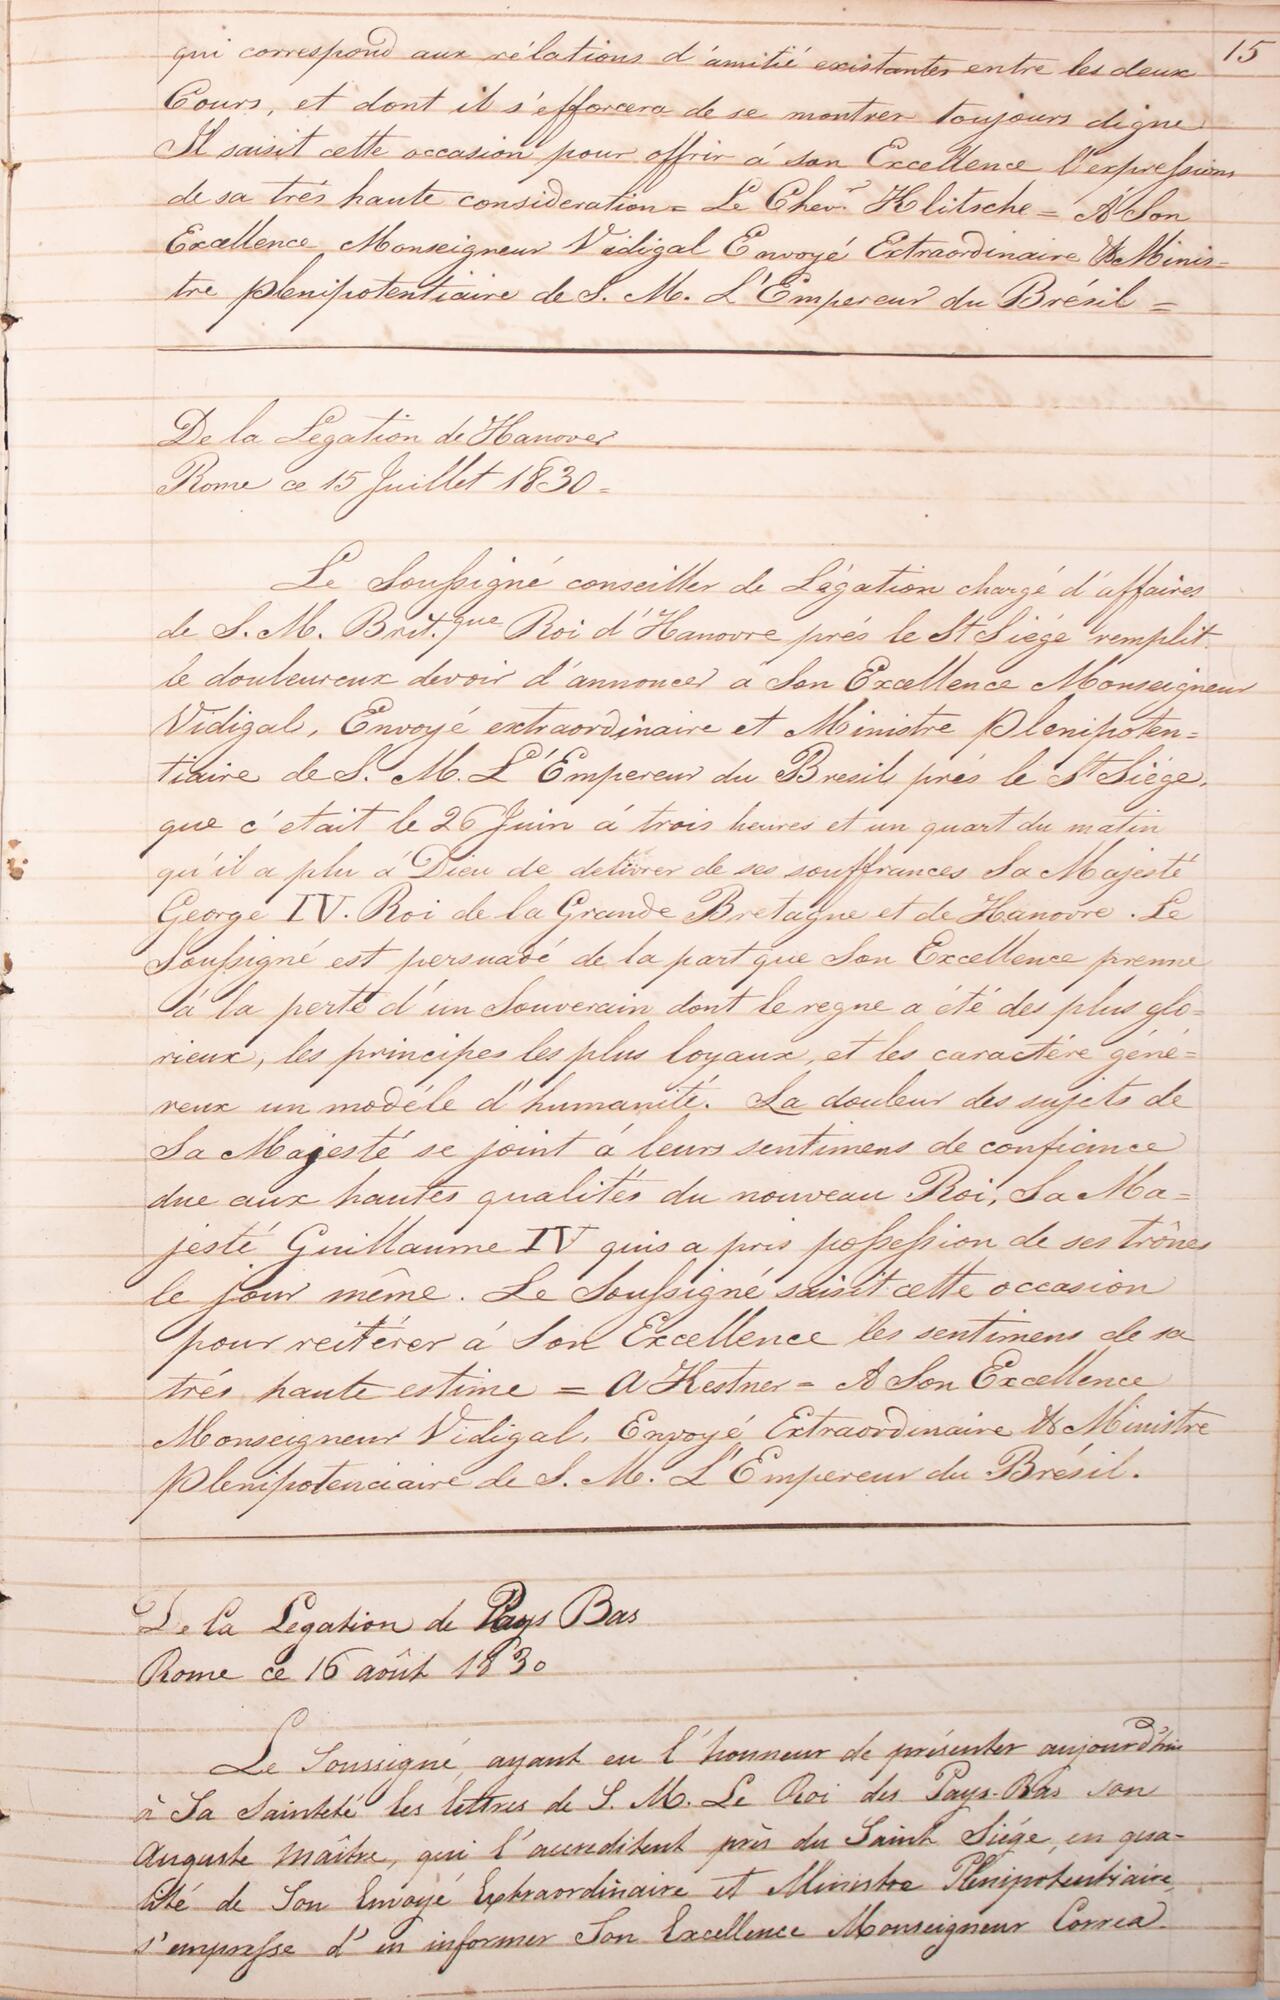 15
qui correspond aux rélations d'amitié existantes entre les deux
Cours, et dont il s'efforcera de se montrer toujours digne
Il saisit cette occasion pour offrir á son Excellence l'expressions
de sa trés haute consideration = Le Chev.r Klitsche = A Son
Excellence Monseigneur Vidigal Envoyé Extraordinaire & Minis-
tre plenipotentiaire de S. M. L'Empereur du Brésil =
De la Legation de Hanover
Rome ce 15 Juillet 1830 =
Le Soussigné conseiller de Légation chargé d'affaires
de S. M. Brit.que Roi d'Hanovre prés le St Siége remplit
le douleureux devoir d'annoncer a Son Excellence Monseigneur
Vidigal, Envoyé extraordinaire et Ministre Plenipoten=
tiaire de S. M. L'Empereur du Bresil prés le St Siége,
que c'etait le 26 Juin á trois heures et un quart du matin
qu'il a plu á Dieu de delivrer de ses souffrances Sa Majesté
George IV. Roi de la Grande Bretagne et de Hanovre. Le
Soussigné est persuadé de la part que Son Excellence prenne
á la perte d'un Souverain dont le regne a été des plus glo=
rieux, les principes les plus loyaux, et les caractére géné=
reux un modéle d'humanité. La douleur des sujets de
Sa Majesté se joint á leurs sentimens de confiance
due aux hautes qualités du nouveau Roi, Sa Ma=
jesté Guillaume IV quis a pris possession de ses trônes
le jour même. Le Soussigné saisit cette occasion
pour reitérer á Son Excellence les sentimens de sa
trés haute estime = A Kestner = A Son Excellence
Monseigneur Vidigal, Envoyé Extraordinaire & Ministre
plenipotenciaire de S. M. L'Empereur du Brésil.
De la Legation de Pays Bas
Rome ce 16 août 1830
Le Soussigné, ayant eu l'honneur de présenter aujourd'hui
à Sa Sainteté les lettres de S. M. Le Roi des Pays-Bas son
Auguste Maître, qui l'accreditent près du Saint Siége, en qua-
lité de Son Envoyé Extraordinaire et Ministre Plénipotentiaire,
s'empresse d'en informer Son Excellence Monseigneur Correa